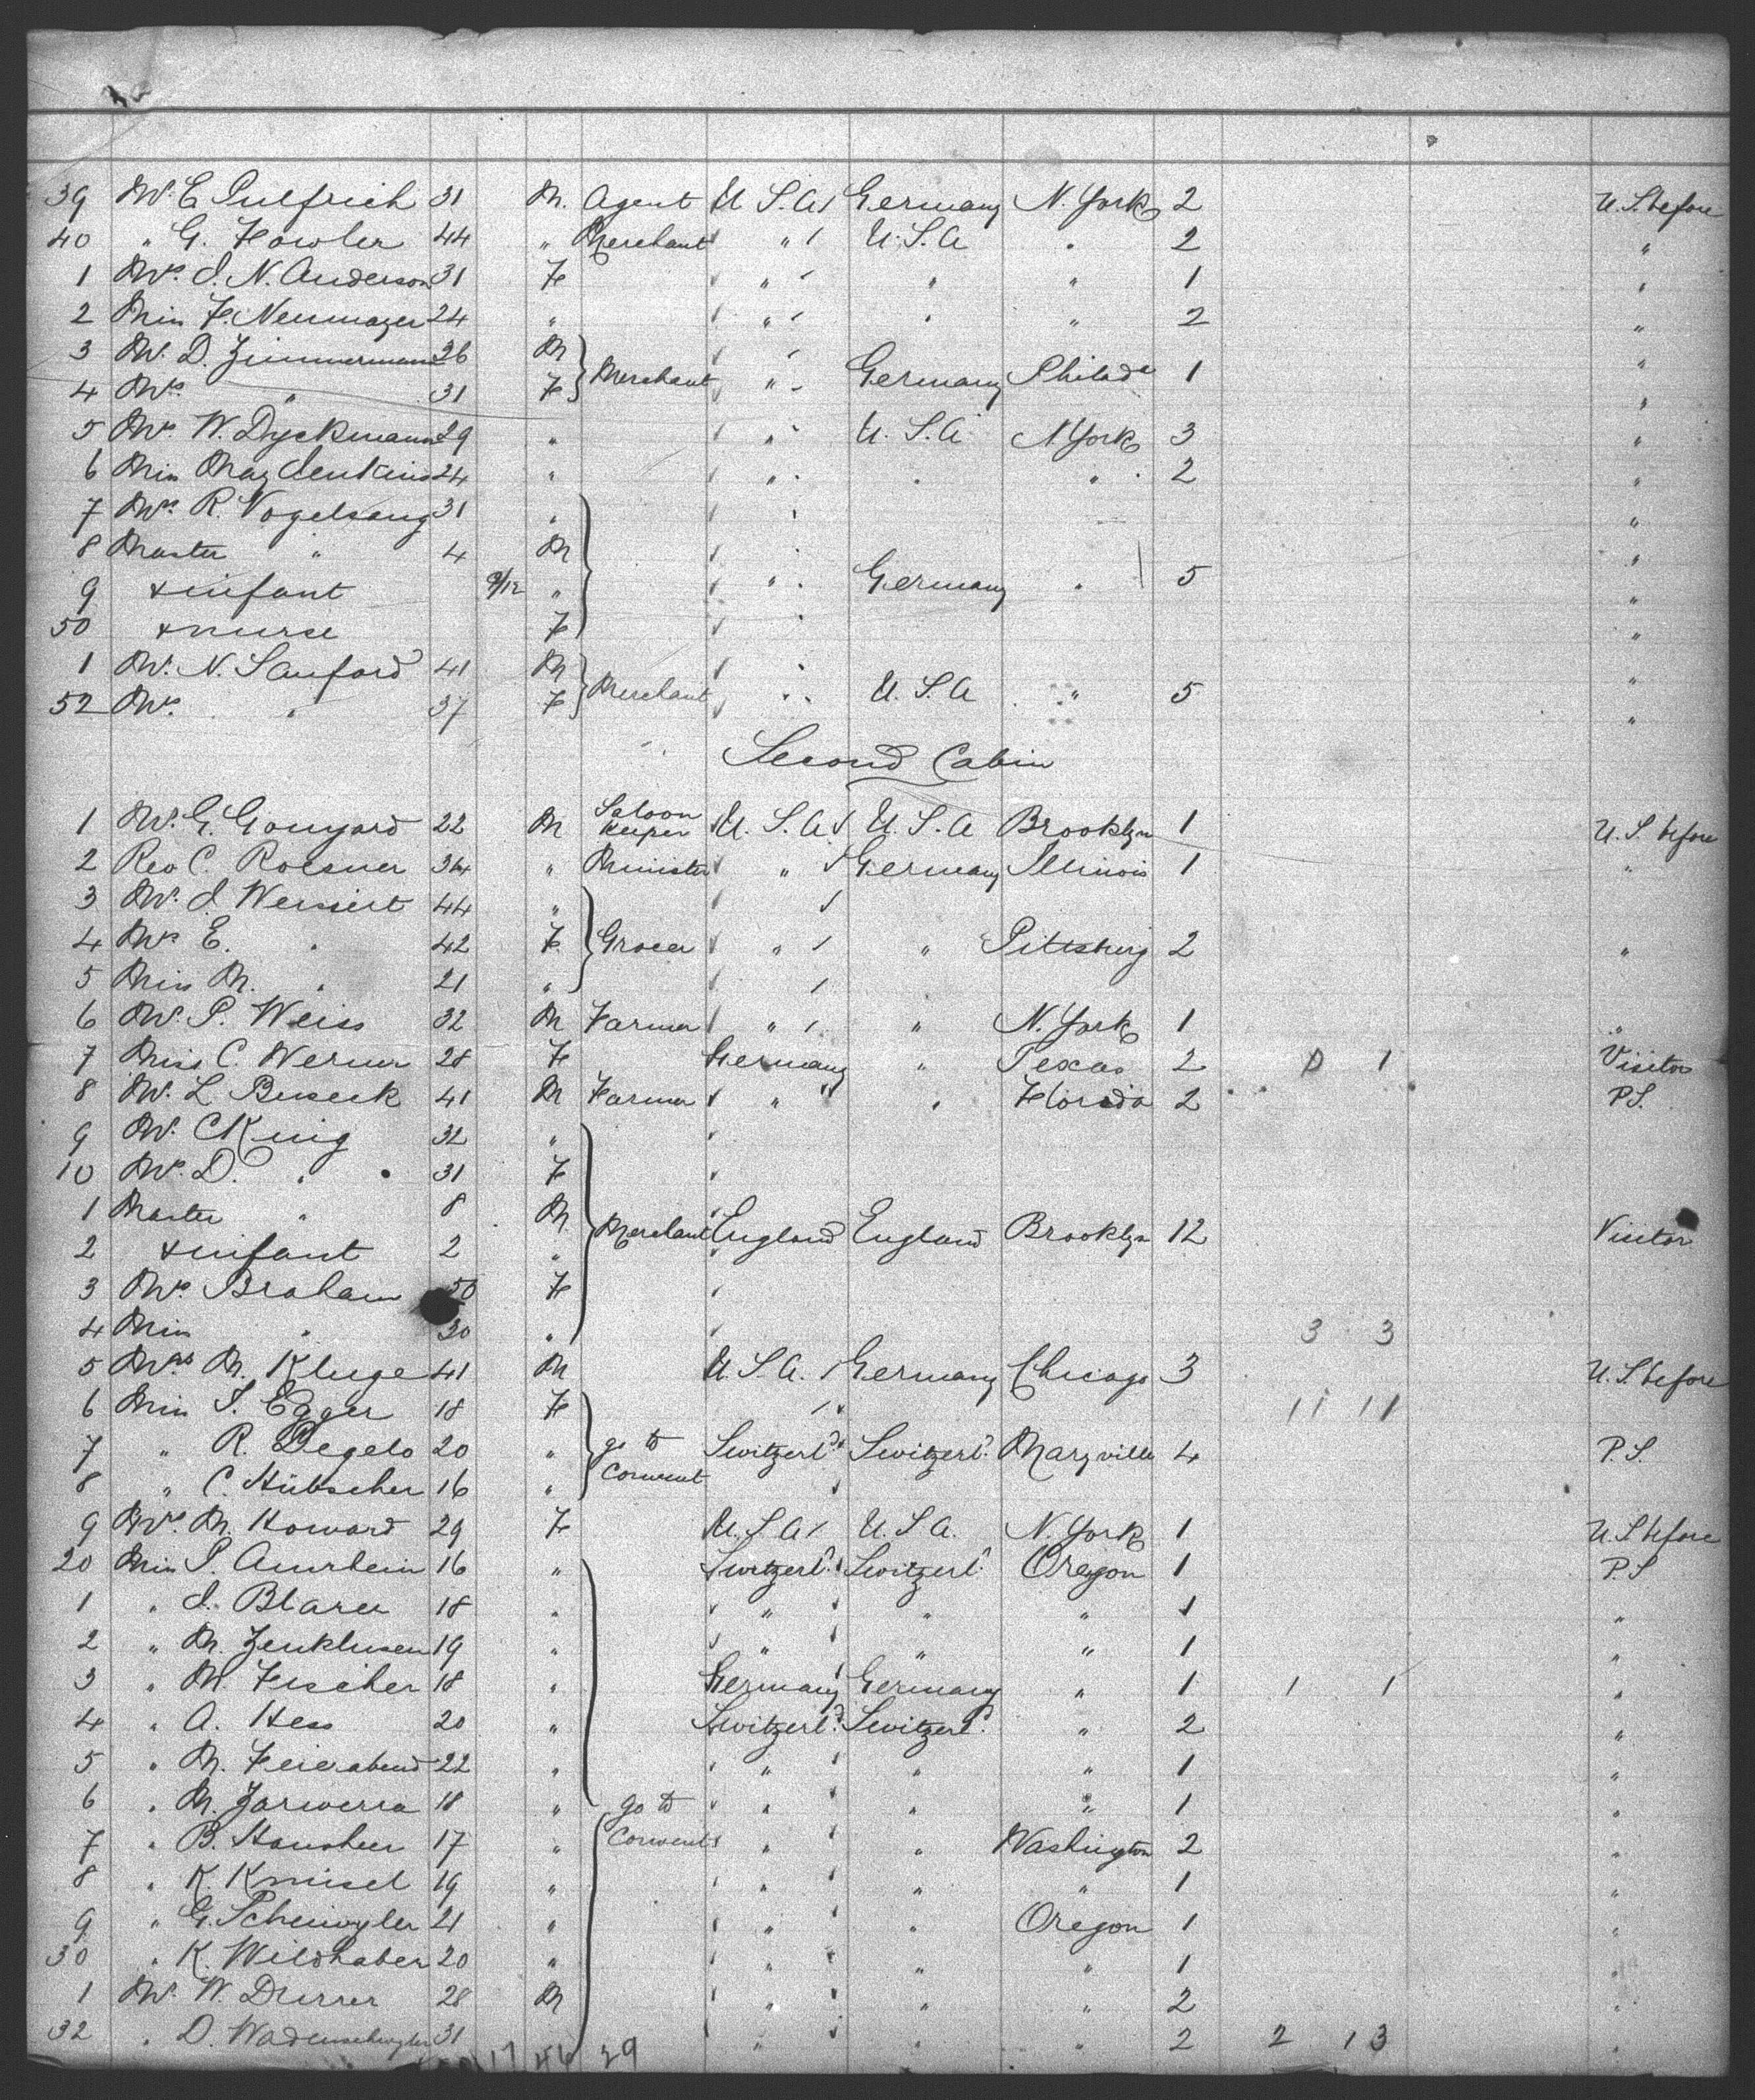 39 Mr. E. Pulfrich 31 M. Agent U.S.A. Germany N. York 2 U.S. before
40 " G. Fowler 44 " Merchant " U.S.A " 2 "
1 Mrs. J. N. Anderson 31 F " " " 1 "
2 Miss F. Neumayer 24 " " " " 2 "
3 Mr. D. Zimmermann 36 M "
4 Mrs. " 31 F } Merchant " Germany Philada 1 "
5 Mrs. W. Dyckmann 29 " " U.S.A N. York 3 "
6 Miss May Jenkins 24 " " " " 2 "
7 Mrs. R. Vogelsang 31 " "
8 Master " 4 M "
9 + infant 9/12 " " Germany " 5 "
50 + nurse F "
1 Mr. N. Sanford 41 M "
52 Mrs. " 37 F } Merchant " U.S.A " 5 "
Second Cabin
1 Mr. G. Gouyard 22 M Saloon Keeper U.S.A U.S.A Brooklyn 1 U.S. before
2 Rev C. Roesner 34 " Minister " Germany Illinois 1 "
3 Mr. J. Weissert 44 "
4 Mrs E. " 42 F } Grocer " " Pittsburg 2 "
5 Miss M. " 21 "
6 Mr. P. Weiss 32 M Farmer " " N. York 1 "
7 Miss C. Werner 28 F Germany " Texas 2 1 Visitor
8 Mr. L. Buseck 41 M Farmer " " Florida 2 P.S.
9 Mr. C King 32 "
10 Mrs. D. " 31 F
1 Master " 8 M
2 + infant 2 " } Merchant England England Brooklyn 12 Visitor
3 Mrs. Braham 50 F
4 Miss " 30 " 3 3
5 Mrs M. Kluge 41 M U.S.A. Germany Chicago 3 U.S. before
6 Miss S. Egger 18 F 11 11
7 " R. Degelo 20 " } go to Convent Switzerld. Switzerld. Maryville 4 P.S.
8 " C. Hübscher 16 "
9 Mrs. M. Howard 29 F U.S.A U.S.A. N. York 1 U.S before
20 Miss P. Amrhein 16 " Switzerld. Switzerld. Oregon 1 P.S
1 " J. Blarer 18 " " " " 1 "
2 " M. Zenklusen 19 " " " " 1 "
3 " M. Fischer 18 " Germany Germany " 1 1 1 "
4 " A. Hess 20 " Switzerld. Switzerld. " 2 "
5 " M. Feierabend 22 " " " " 1 "
6 " M. Zarwerra 18 " go to " " " 1 "
7 " B. Hausheer 17 " Convent " " Washington 2 "
8 " K. Knüsel 19 " " " " 1 "
9 " G. Scheiwyler 21 " " " Oregon 1 "
30 " K. Wildhaber 20 " " " " 1 "
1 Mr. W. Durrer 28 M " " " 2 "
32 " D. 31 " " " 2 2 1 3 "
17 46 29